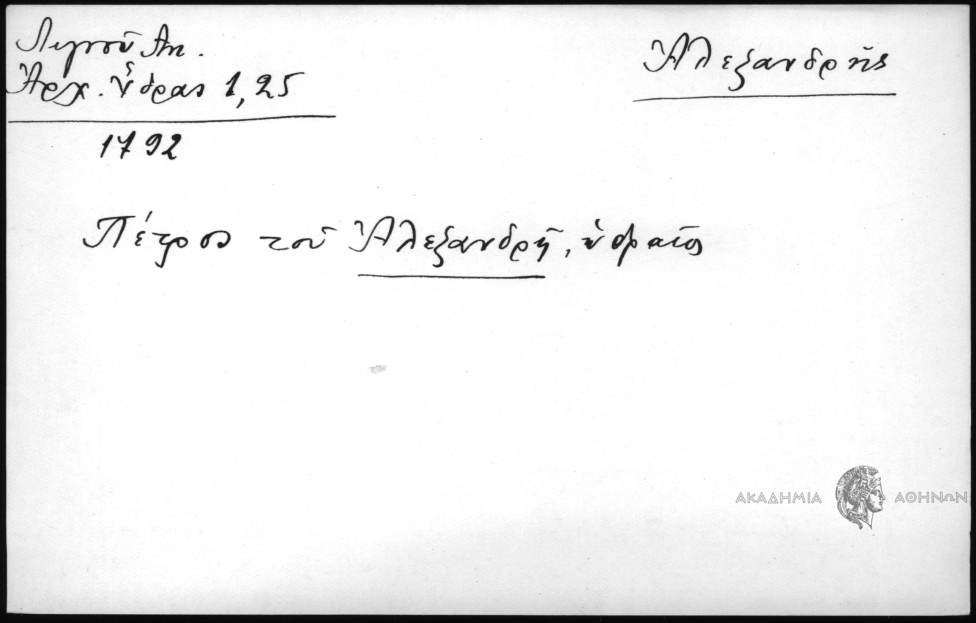 Λιγνοῦ Ἀν.
Ἀρχ. Ὕδρας 1,25
1792
Ἀλεξανδρῆς
Πέτρος τοῦ Ἀλεξανδρῆ, ὑδραῖος
ΑΚΑΔΗΜΙΑ ΑΘΗΝΩΝ